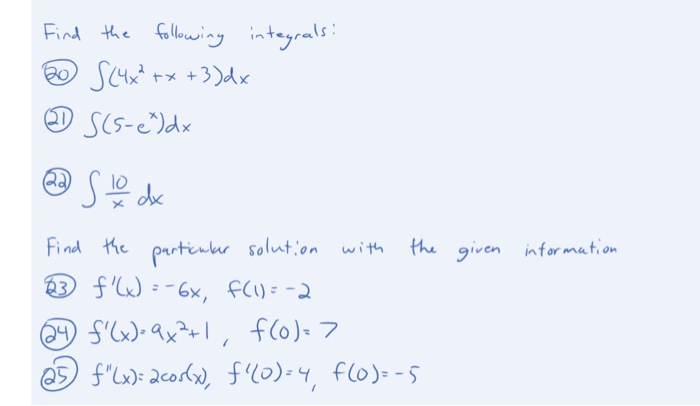 Find the following integrals:
20 ∫(4x² + x + 3)dx
21 ∫(5-eˣ)dx
22 ∫ 10/x dx
Find the particular solution with the given information
23 f'(x) = -6x, f(1) = -2
24 f'(x) = 9x²+1, f(0) = 7
25 f"(x) = 2cos(x), f'(0) = 4, f(0) = -5